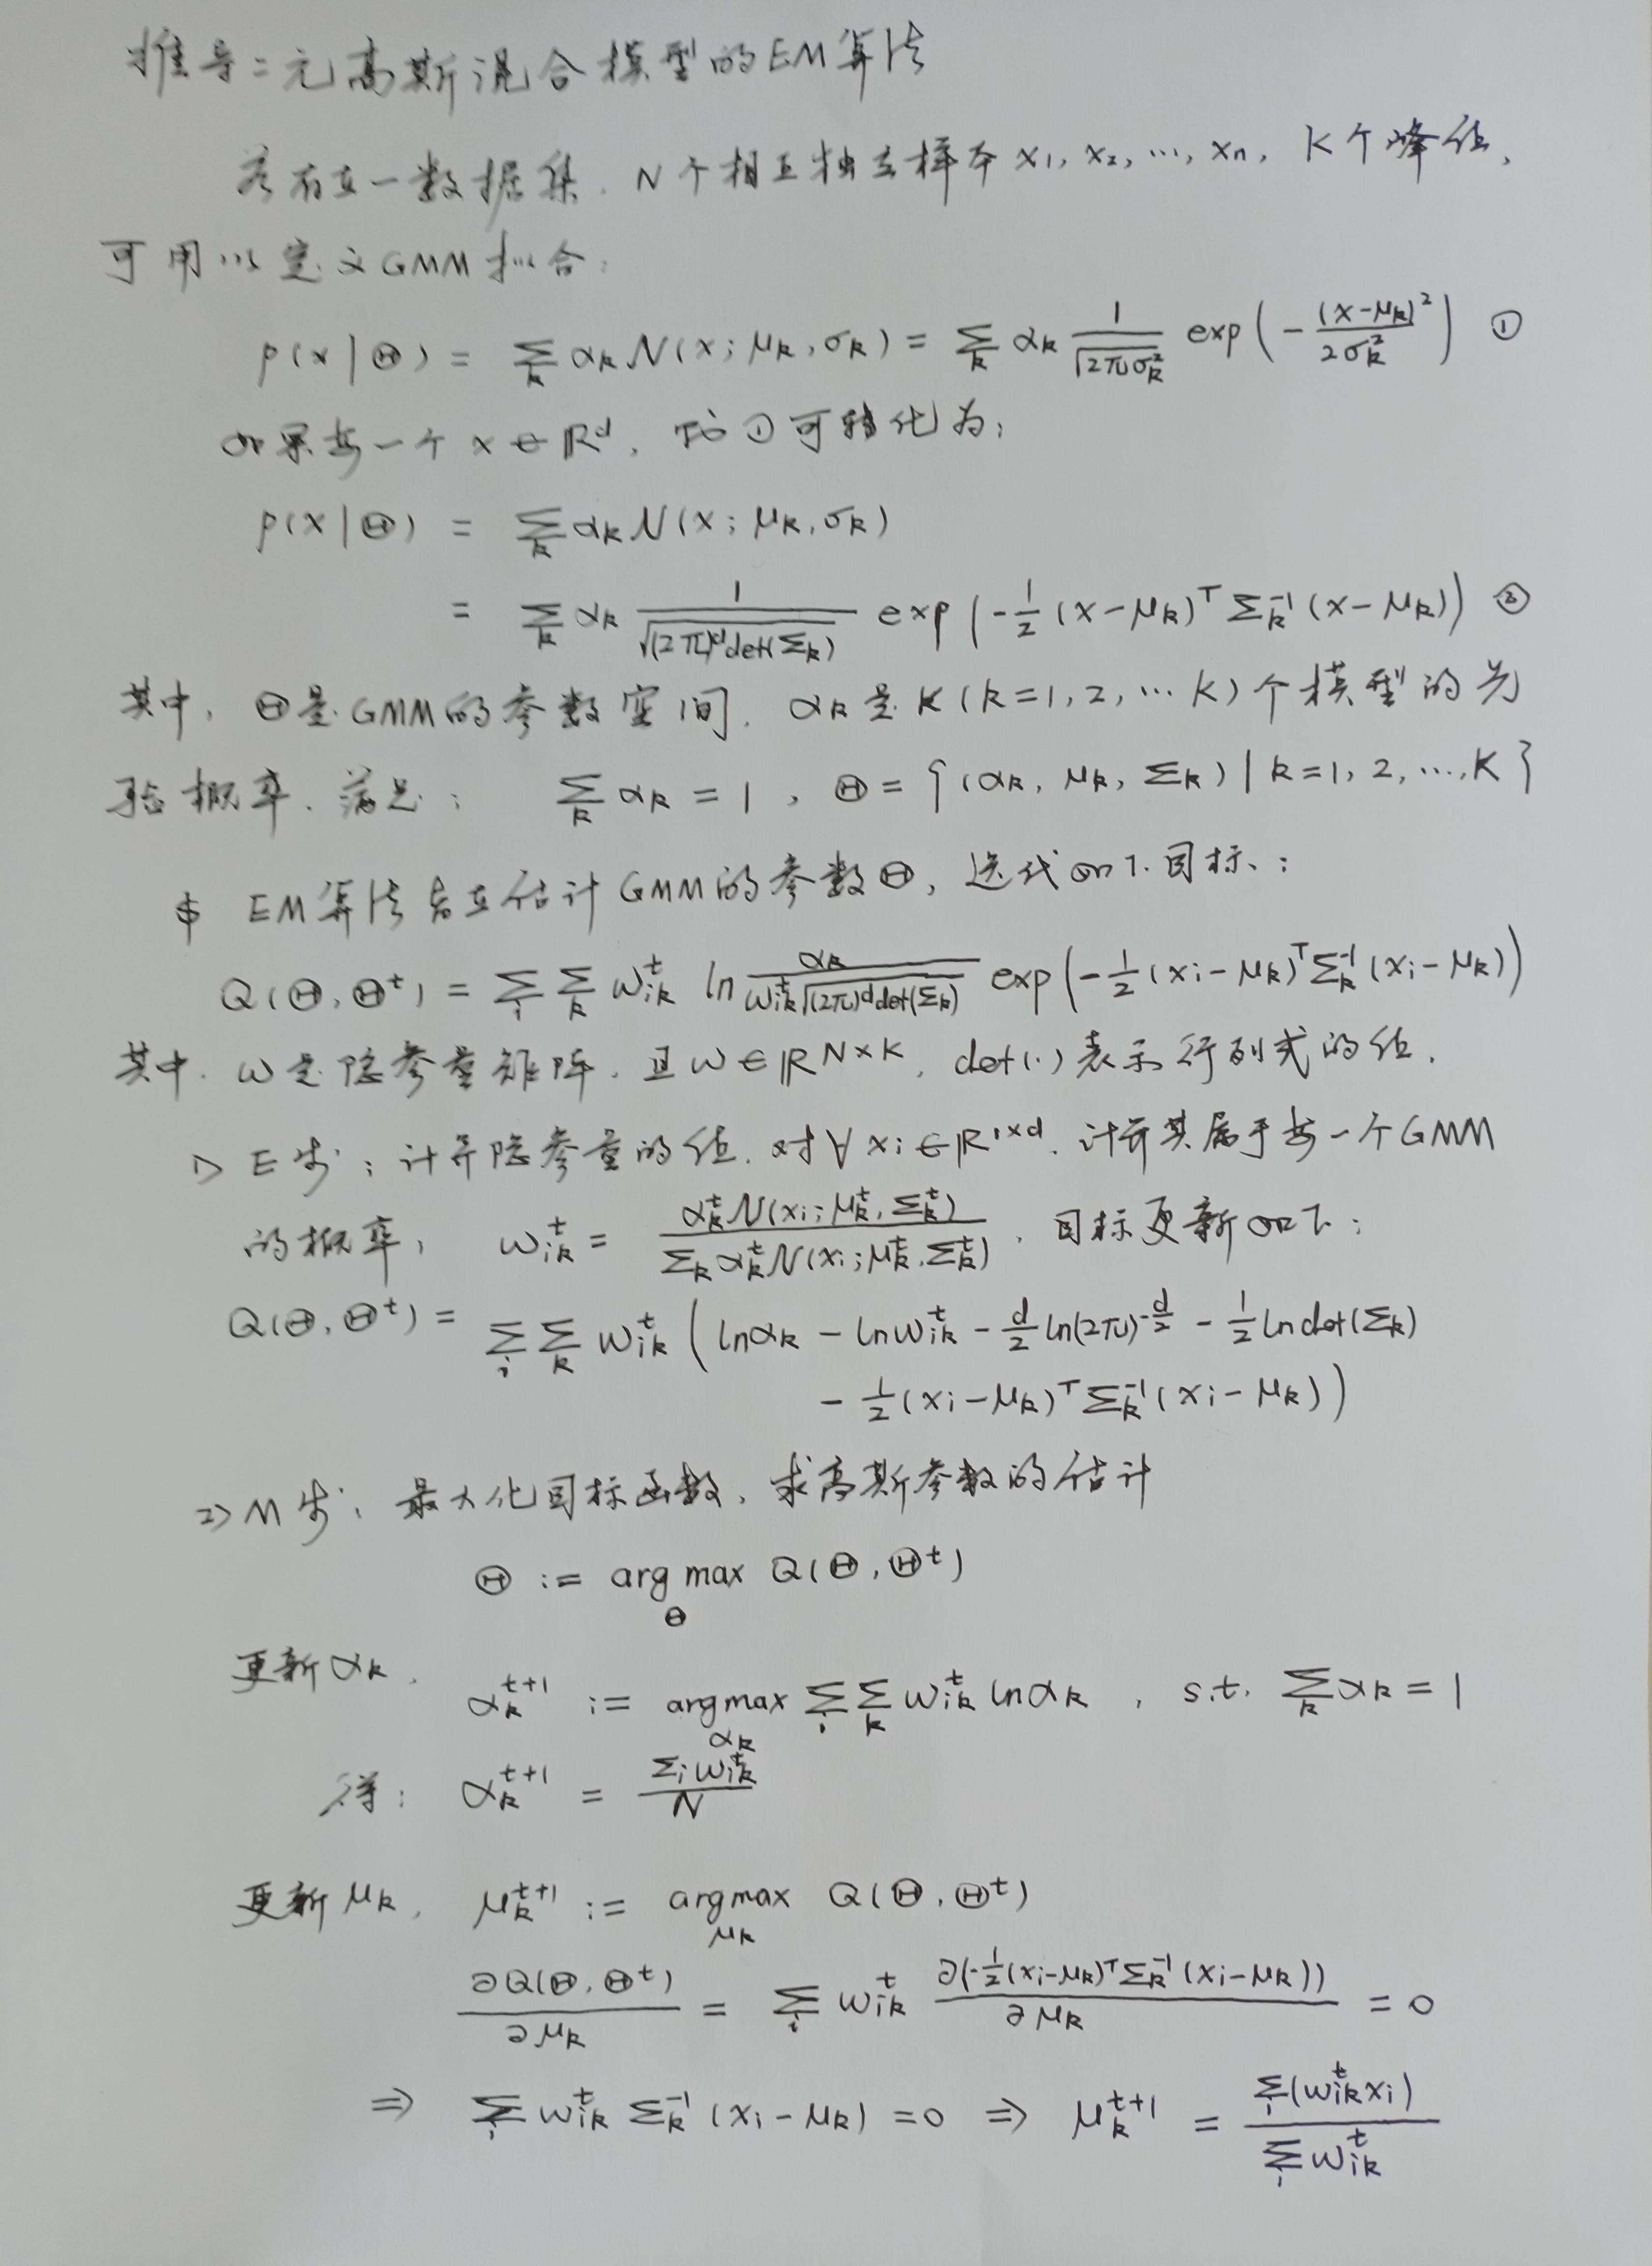 推导二元高斯混合模型的EM算法
若存在一数据集,N个相互独立样本 x₁, x₂, …, xₙ, K个峰值,
可用以定义GMM拟合:
p(x|Θ) = ∑_k α_k N(x; μ_k, σ_k) = ∑_k α_k 1/√(2πσ_k²) exp(-(x-μ_k)²/2σ_k²) ①
如果每一个 x∈ℝᵈ, 则①可转化为:
p(x|Θ) = ∑_k α_k N(x; μ_k, σ_k)
= ∑_k α_k 1/√((2π)ᵈdet(Σ_k)) exp(-1/2 (x-μ_k)ᵀ Σ_k⁻¹ (x-μ_k)) ②
其中, Θ是GMM的参数空间, α_k是K(k=1,2,…K)个模型的先
验概率, 满足: ∑_k α_k = 1, Θ = {(α_k, μ_k, Σ_k) | k=1, 2, …, K}
EM算法旨在估计GMM的参数Θ, 迭代如下目标:
Q(Θ, Θᵗ) = ∑_i ∑_k ω_ikᵗ ln α_k/(ω_ikᵗ√((2π)ᵈdet(Σ_k))) exp(-1/2 (x_i-μ_k)ᵀ Σ_k⁻¹ (x_i-μ_k))
其中, ω是隐参量矩阵, 且ω∈ℝ^{N×K}, det(·)表示行列式的值.
1> E步: 计算隐参量的值, 对∀x_i∈ℝ^{1×d}, 计算其属于每一个GMM
的概率, ω_ikᵗ = α_kᵗ N(x_i; μ_kᵗ, Σ_kᵗ) / Σ_k α_kᵗ N(x_i; μ_kᵗ, Σ_kᵗ), 目标更新如下:
Q(Θ, Θᵗ) = ∑_i ∑_k ω_ikᵗ (lnα_k - lnω_ikᵗ - d/2 ln(2π)^{-d/2} - 1/2 ln det(Σ_k)
- 1/2 (x_i-μ_k)ᵀ Σ_k⁻¹ (x_i-μ_k))
2> M步: 最大化目标函数, 求高斯参数的估计
Θ := arg max_Θ Q(Θ, Θᵗ)
更新α_k, α_k^{t+1} := argmax_{α_k} ∑_i ∑_k ω_ikᵗ lnα_k, s.t. ∑_k α_k = 1
得: α_k^{t+1} = Σ_i ω_ikᵗ / N
更新μ_k, μ_k^{t+1} := argmax_{μ_k} Q(Θ, Θᵗ)
∂Q(Θ, Θᵗ)/∂μ_k = ∑_i ω_ikᵗ ∂(-1/2 (x_i-μ_k)ᵀ Σ_k⁻¹ (x_i-μ_k))/∂μ_k = 0
⇒ ∑_i ω_ikᵗ Σ_k⁻¹ (x_i-μ_k) = 0 ⇒ μ_k^{t+1} = ∑_i(ω_ikᵗ x_i) / ∑_i ω_ikᵗ